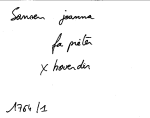 Sansen joanna
fa prêter
x hovendin
1764/1